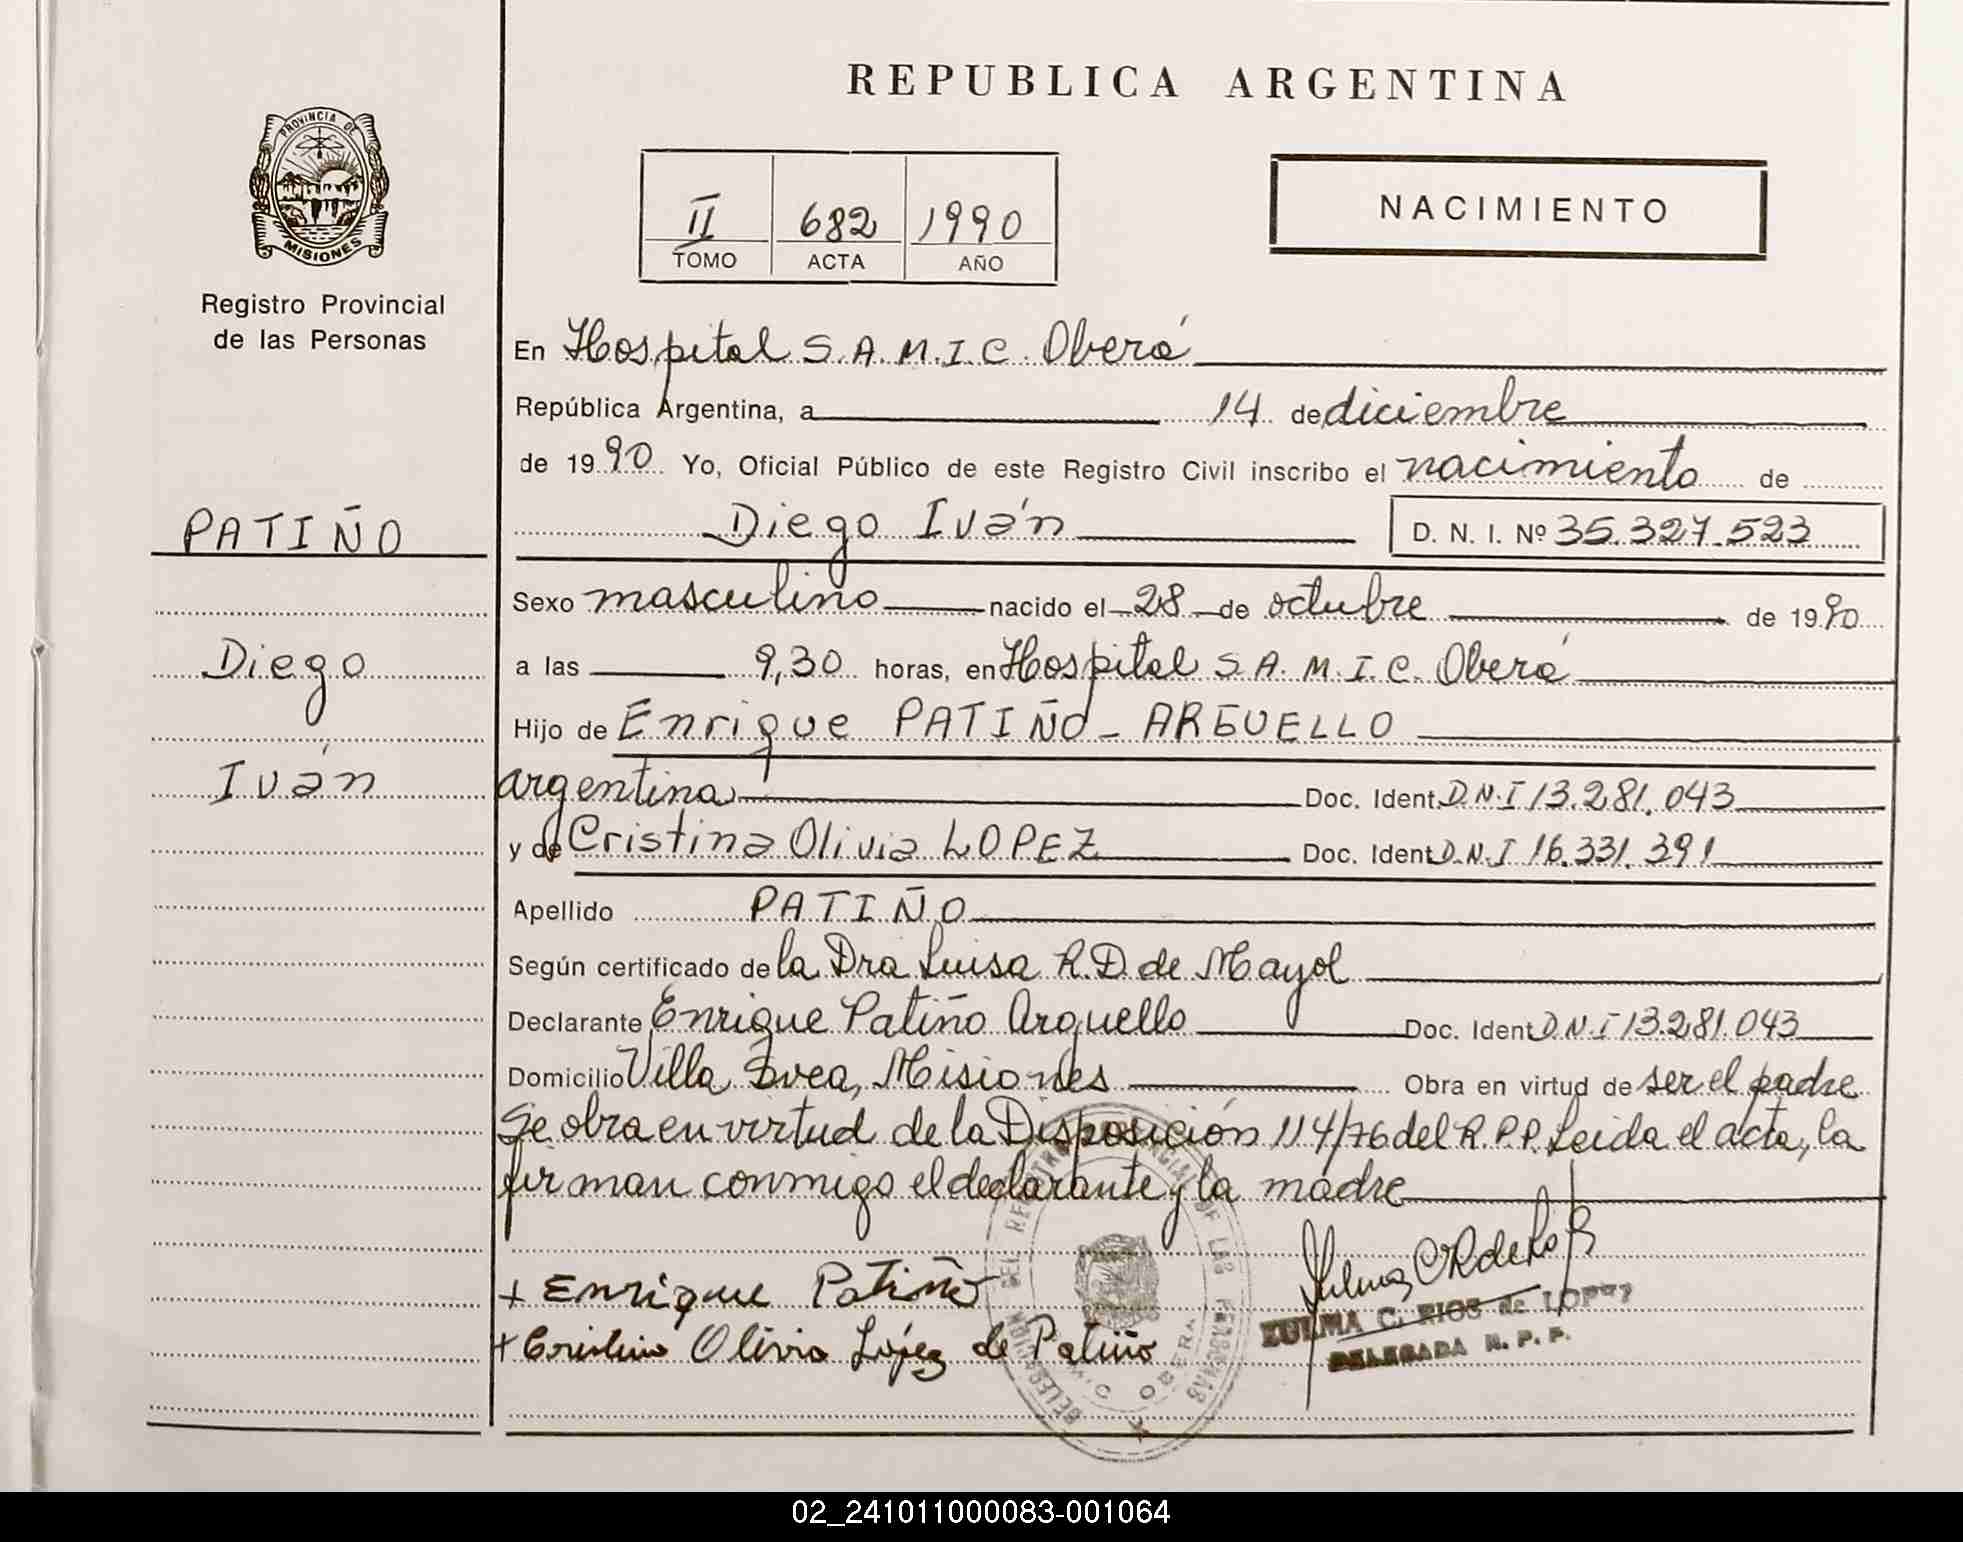 REPUBLICA ARGENTINA
PROVINCIA DE
MISIONES
Registro Provincial
de las Personas
II 682 1990
TOMO ACTA AÑO
NACIMIENTO
En Hospital S.A.M.I.C. Oberá
República Argentina, a 14 de diciembre
de 1990 Yo, Oficial Público de este Registro Civil inscribo el nacimiento de
PATIÑO
Diego Iván D. N. I. Nº 35.327.523
Sexo masculino nacido el 28 de octubre de 1990
Diego
a las 9,30 horas, en Hospital S.A.M.I.C. Oberá
Hijo de Enrique PATIÑO - ARGUELLO
Iván
argentina Doc. Ident. D.N.I 13.281.043
y de Cristina Olivia LOPEZ Doc. Ident. D.N.I 16.331.391
Apellido PATIÑO
Según certificado de la Dra Luisa R.D. de Mayol
Declarante Enrique Patiño Arguello Doc. Ident. D.N.I 13.281.043
Domicilio Villa Svea, Misiones Obra en virtud de ser el padre
Se obra en virtud de la Disposición 114/76 del R.P.P. Leida el acta, la
firman conmigo el declarante y la madre
+ Enrique Patiño
+ Cristina Olivia López de Patiño
ZULMA C. RIOS de LOPEZ
DELEGADA R. P. P.
DELEGACION DEL REGISTRO PROVINCIAL DE LAS PERSONAS
OBERA
02_241011000083-001064